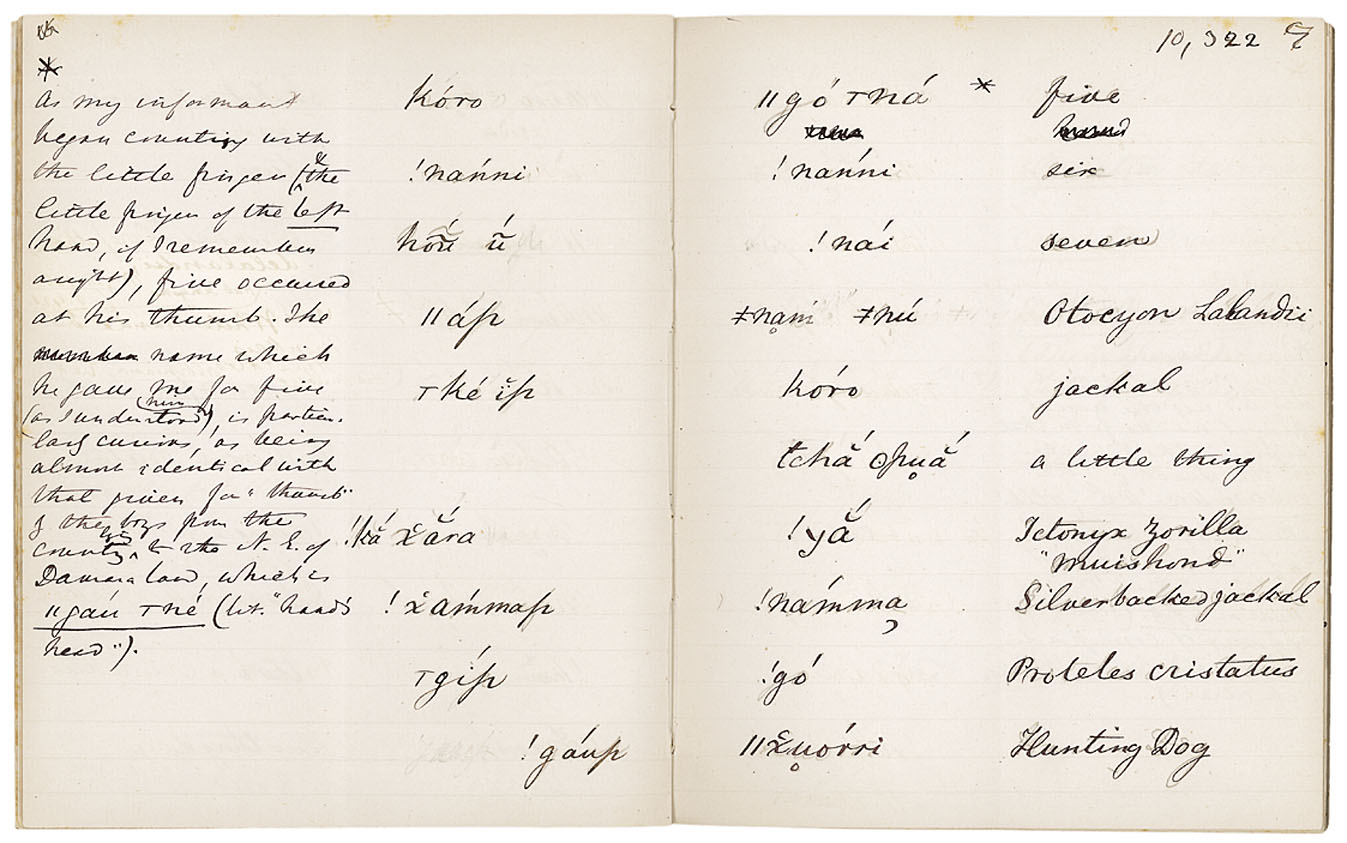 *
As my informant
began counting with
the little finger (& the
little finger of the left
hand, if I remember
aright), five occurred
at his thumb. The
name which
he gave me for five
(as I understood him), is particu-
larly curious, as being
almost identical with
that given for "thumb"
by the boys from the
country to the N. E. of
Damara land, which is
ǁgáu ⊤né (lit. "hand's
head").
kóro
!nánni
hoū́ ū́
ǁáp
⊤ké ĭp
!kắ x̌ắra
!x̌ámmap
⊤gíp
!gáup
10,322
ǁgó ⊤ná * five
!nánni six
!nái seven
ǂna̤ḿ ǂnú Otocyon Lalandii
kóro jackal
tchắ ʘpu̥ắ a little thing
!yắ Ictonyx Zorilla
"muishond"
!námma̦ Silverbacked jackal
!gó Proteles cristatus
ǁx̌u̥órri Hunting Dog